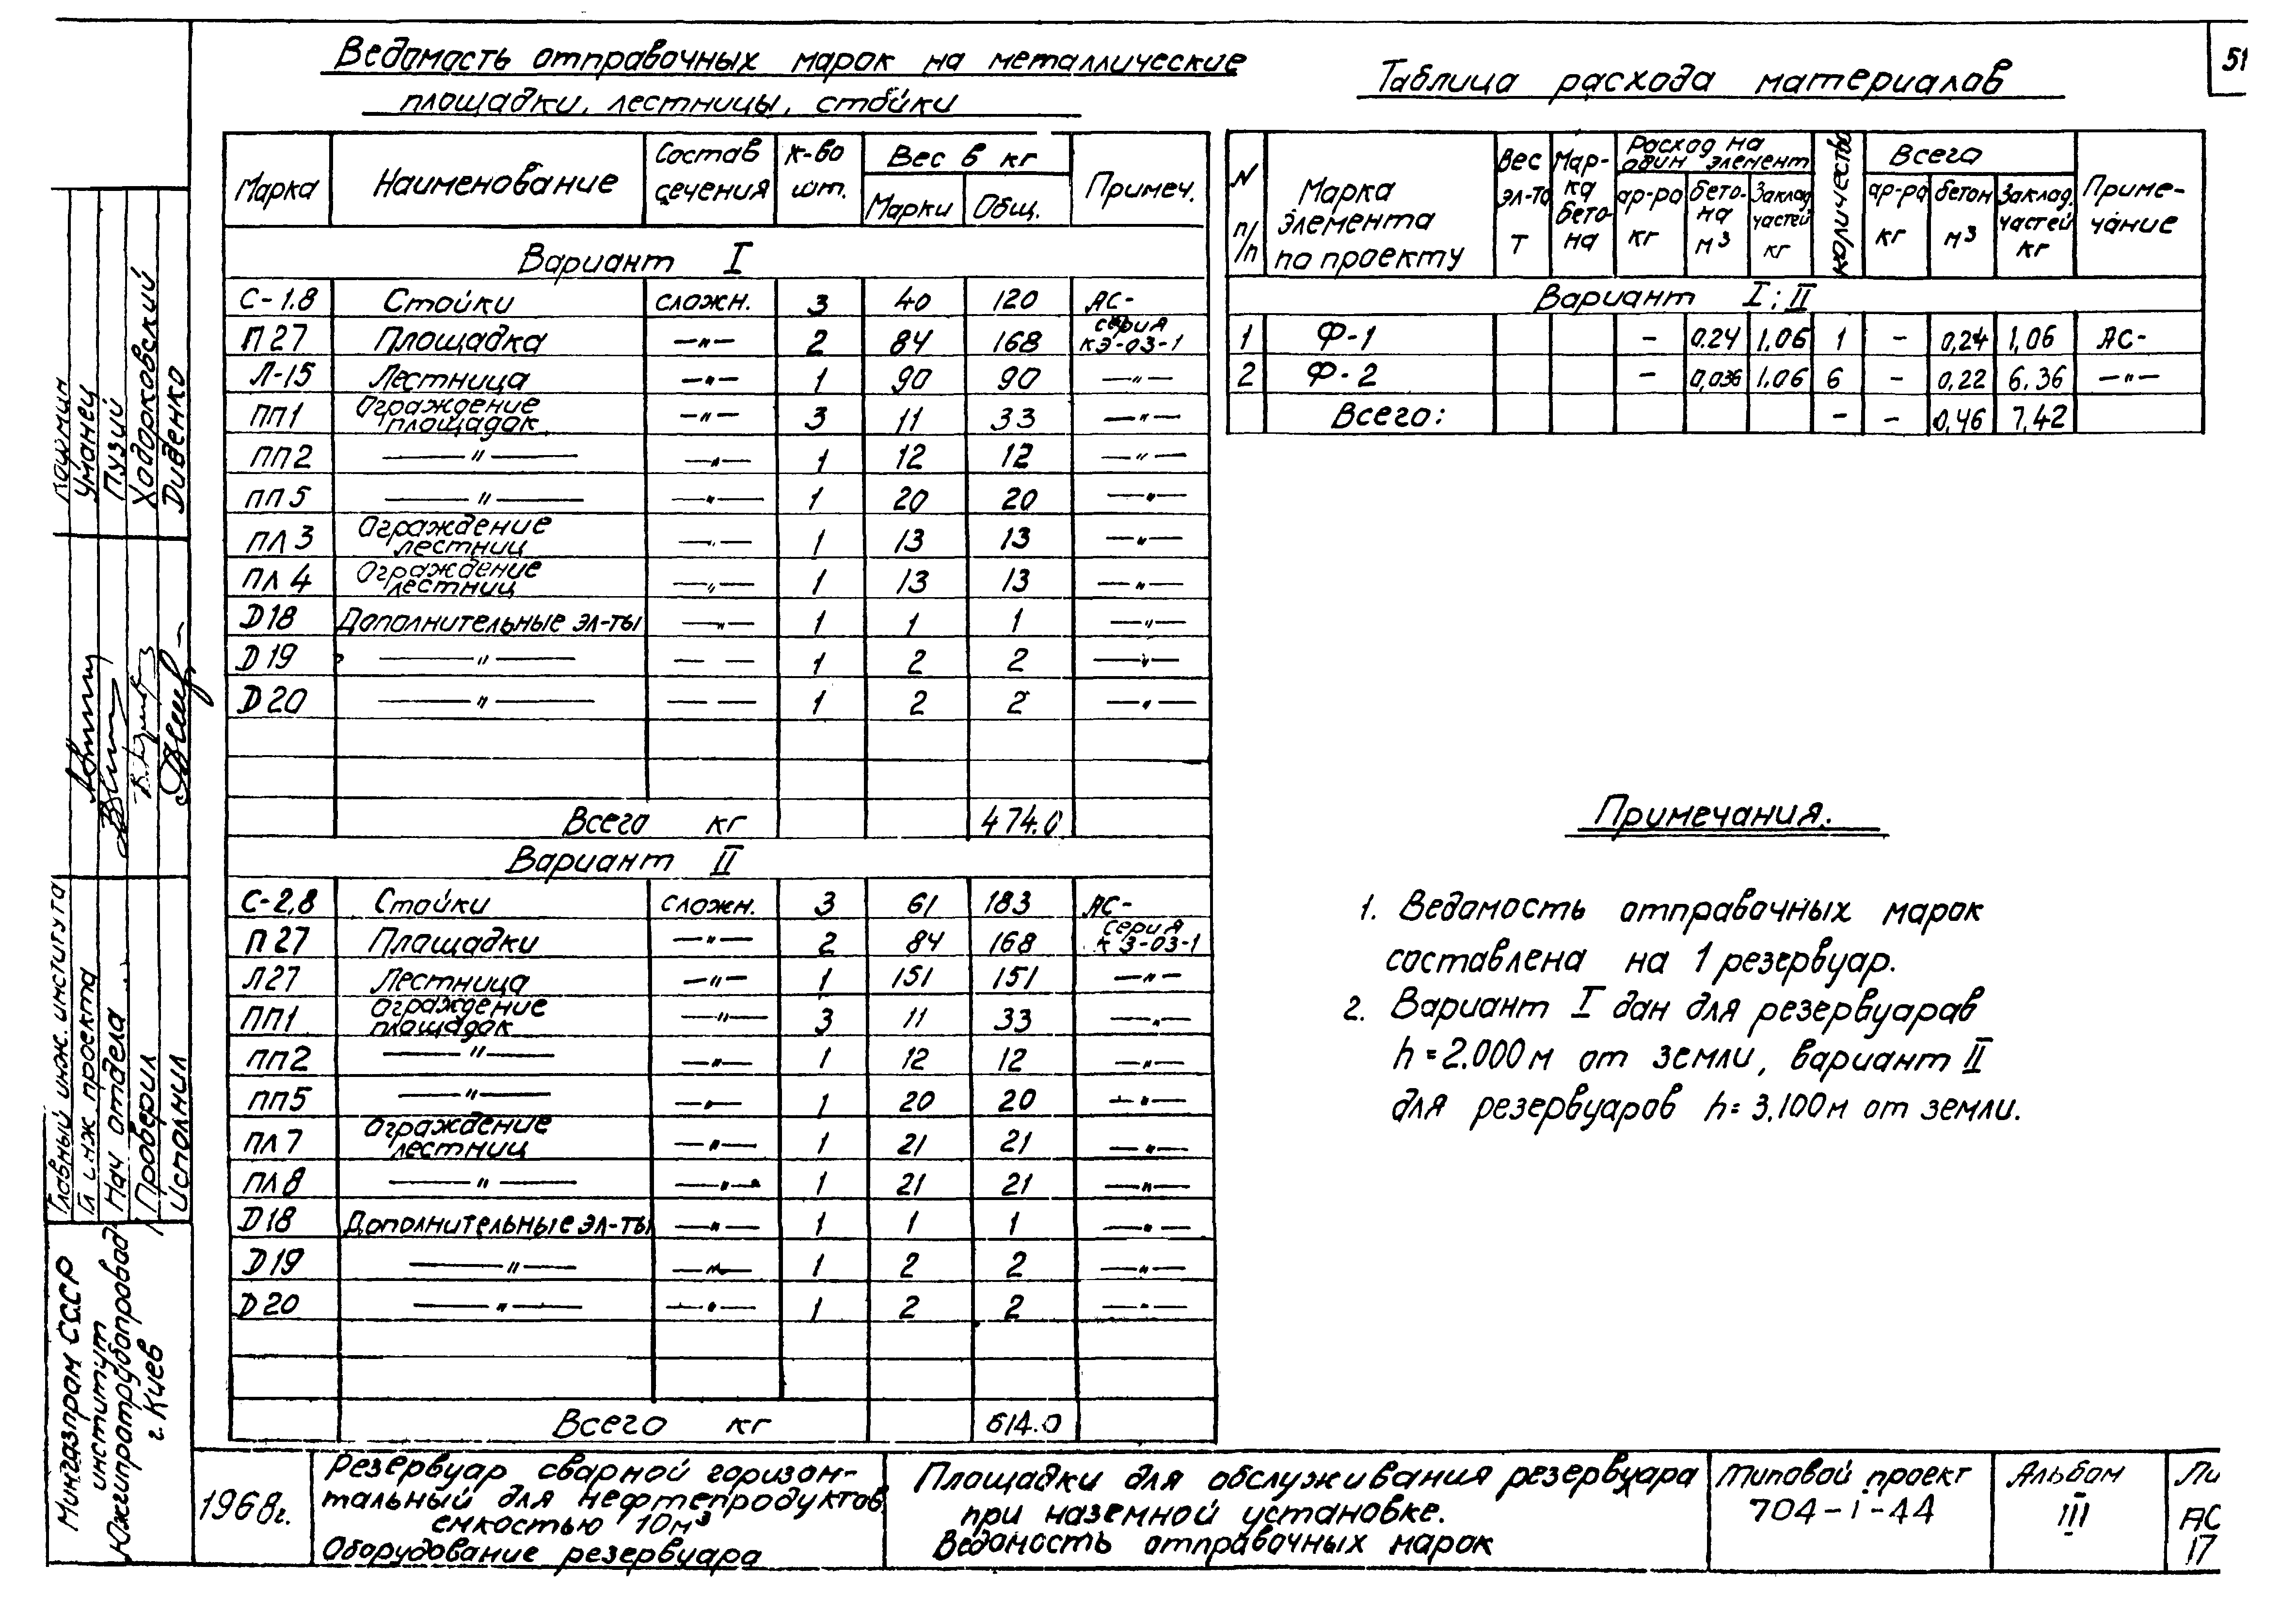 51
Ведомость отправочных марок на металлические
площадки, лестницы, стойки
Марка Наименование Состав сечения к-во шт. Вес в кг Примеч.
Марки Общ.
Вариант I
С-1.8 Стойки сложн. 3 40 120 АС-
П27 Площадка —"— 2 84 168 серия КЭ-03-1
Л-15 Лестница —"— 1 90 90 —"—
ПП1 Ограждение площадок —"— 3 11 33 —"—
ПП2 —"— —"— 1 12 12 —"—
ПП5 —"— —"— 1 20 20 —"—
ПЛ3 Ограждение лестниц —"— 1 13 13 —"—
ПЛ4 Ограждение лестниц —"— 1 13 13 —"—
D18 Дополнительные эл-ты —"— 1 1 1 —"—
D19 —"— — — 1 2 2 —"—
D20 —"— — — 1 2 2 —"—
Всего кг 474.0
Вариант II
С-2,8 Стойки сложн. 3 61 183 АС-
П27 Площадки —"— 2 84 168 серия КЭ-03-1
Л27 Лестница —"— 1 151 151 —"—
ПП1 Ограждение площадок —"— 3 11 33 —"—
ПП2 —"— —"— 1 12 12 —"—
ПП5 —"— —"— 1 20 20 —"—
ПЛ7 Ограждение лестниц —"— 1 21 21 —"—
ПЛ8 —"— —"— 1 21 21 —"—
D18 Дополнительные эл-ты —"— 1 1 1 —"—
D19 —"— —"— 1 2 2 —"—
D20 —"— —"— 1 2 2 —"—
Всего кг 614.0
Таблица расхода материалов
N п/п Марка элемента по проекту Вес эл-та Т Марка бетона Расход на один элемент количество Всего Примечание
ар-ра кг бетона м³ Заклад. частей кг ар-ра кг бетон м³ Заклад. частей кг
Вариант I; II
1 Ф-1 – 0.24 1.06 1 – 0,24 1,06 АС-
2 Ф-2 – 0,036 1.06 6 – 0,22 6.36 —"—
Всего: – – 0,46 7.42
Примечания.
1. Ведомость отправочных марок
составлена на 1 резервуар.
2. Вариант I дан для резервуаров
h=2.000м от земли, вариант II
для резервуаров h=3.100м от земли.
Главный инж. института
Гл инж проекта Уманец
Нач отдела Пузий
Проверил Ходорковский
Исполнил Диденко
Мингазпром СССР
институт
Южгипротрубопровод
г. Киев
1968г.
Резервуар сварной горизон-
тальный для нефтепродуктов
емкостью 10м³
Оборудование резервуара
Площадки для обслуживания резервуара
при наземной установке.
Ведомость отправочных марок
Типовой проект
704-1-44
Альбом
III
Ли
АС
17